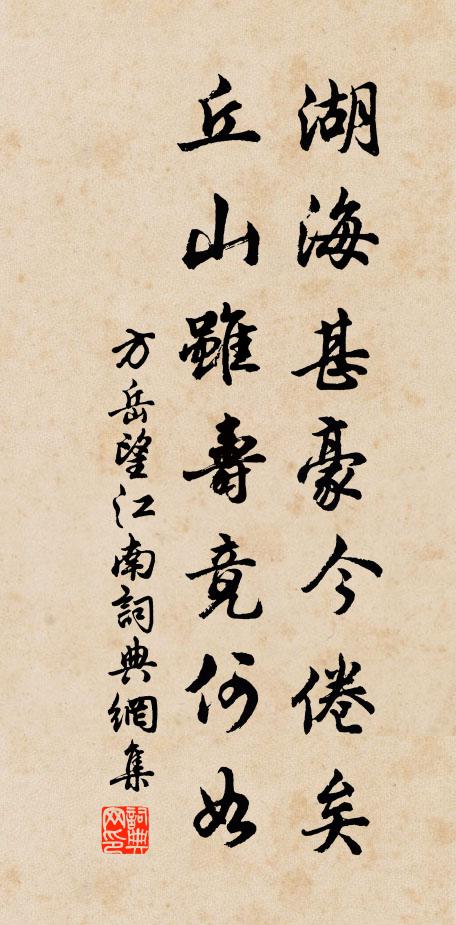 湖海甚豪今倦矣
丘山雖壽竟何如
方岳望江南詞典網集
詞典網印